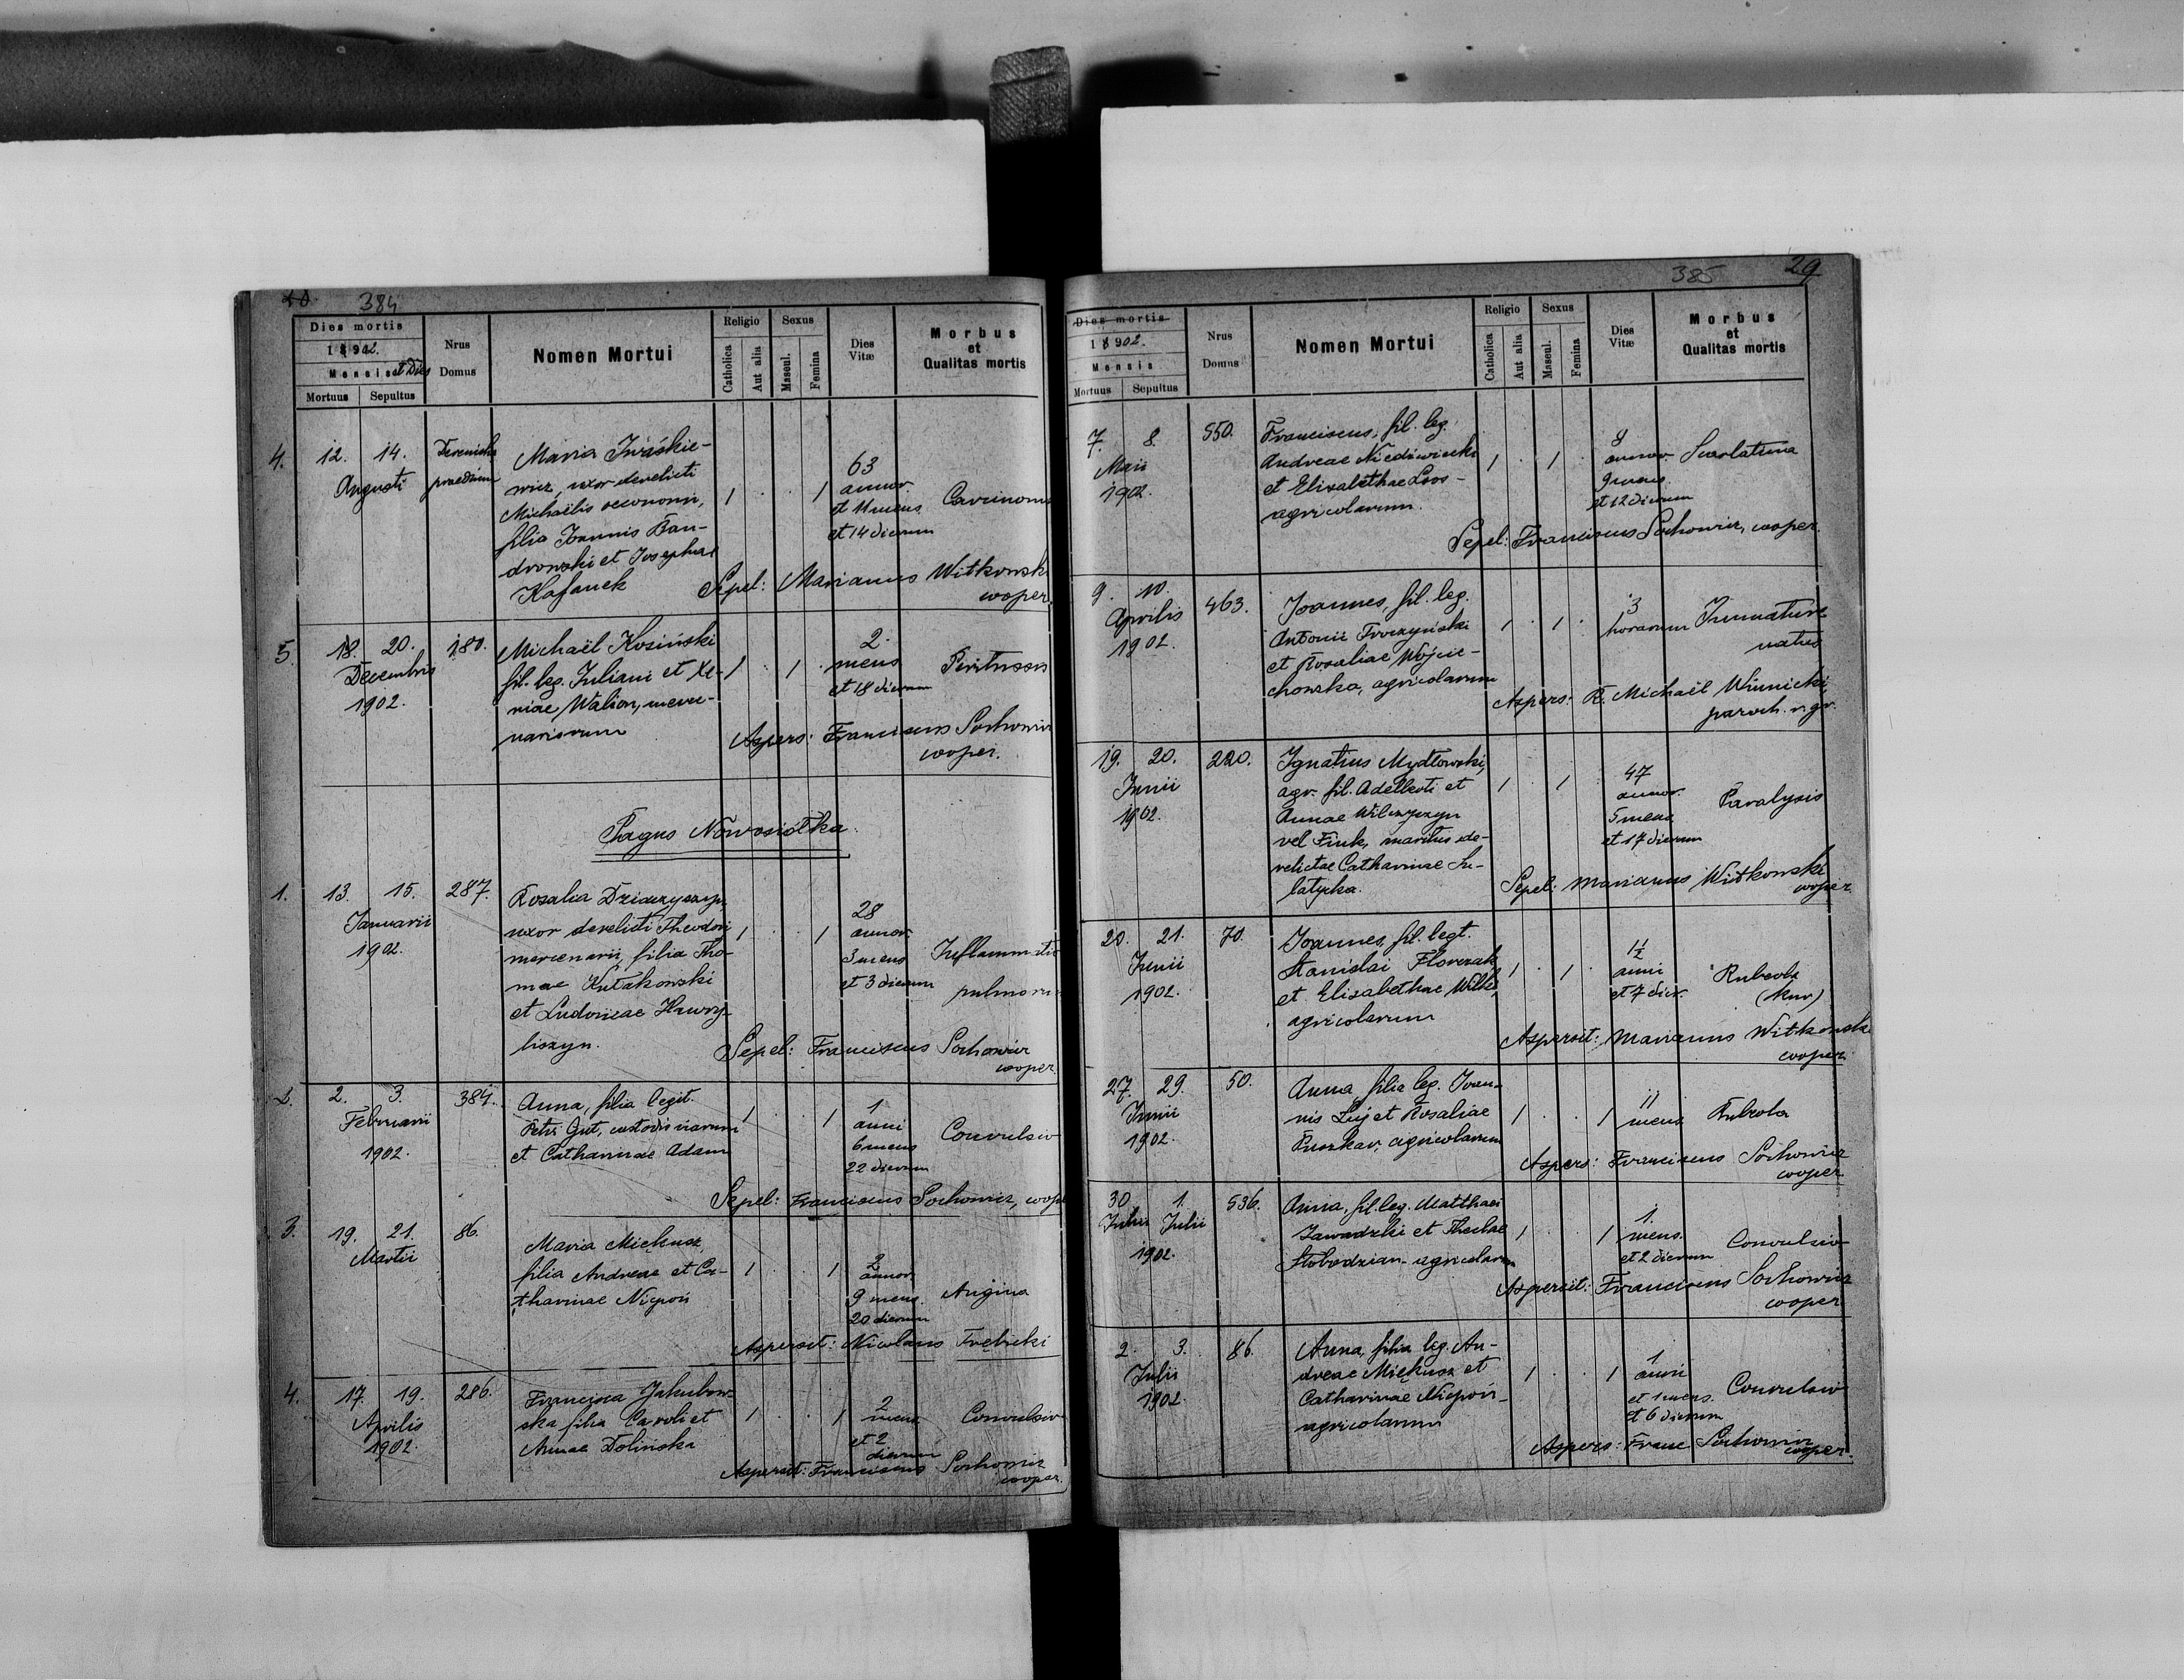 384
Dies mortis
1902.
Mensis et Dies
Mortuus Sepultus
Nrus Domus
Nomen Mortui
Religio
Catholica
Aut alia
Sexus
Mascul.
Femina
Dies Vitæ
Morbus et Qualitas mortis
4. 12. 14. Augusti praedium
Maria Iwaśkie-
wicz, uxor derelicti
Michaëlis oeconomi,
filia Joannis Ban-
drowski et Josephae
Kafanek
1 . . 1
63
annor.
et 11 mens.
et 14 dierum
Carcinoma
Sepel: Marianus Witkowski
cooper.
5. 18. 20. 180.
Decembris
1902.
Michaël Kosiński
fil. leg. Juliani et Xe-
niae Walion, merce-
nariorum
1 . 1 .
2
mens
et 18 dierum
Pertussis
Aspers: Franciscus Sochowicz
cooper.
Pagus Nowosiółka.
1. 13. 15. 287.
Januarii
1902.
Rosalia Dziaczyszyn,
uxor derelicti Theodori
mercenarii, filia Tho-
mae Kułakowski
et Ludovicae Hawry-
liszyn.
1 . . 1
28
annor.
3 mens
et 3 dierum
Inflammatio
pulmonum
Sepel: Franciscus Sochowicz
cooper.
2. 2. 3. 384.
Februarii
1902.
Anna, filia legit.
Petri Gut, custodis viarum
et Catharinae Adam
1 . . 1
1
anni
6 mens
22 dierum
Convulsio
Sepel: Franciscus Sochowicz, coop
3. 19. 21. 86.
Martii
Maria Miękusz,
filia Andreae et Ca-
tharinae Nicpoń
1 . . 1
2
annor.
9 mens.
20 dierum
Angina
Aspersit: Nicolaus Frębicki
4. 17. 19. 286.
Aprilis
1902.
Francisca Jakubow-
ska filia Caroli et
Annae Dolińska
1 . . 1
2
mens.
et 2
dierum
Convulsio
Aspersit: Franciscus Sochowicz
cooper.
385 29
Dies mortis
1902.
Mensis
Mortuus Sepultus
Nrus Domus
Nomen Mortui
Religio
Catholica
Aut alia
Sexus
Mascul.
Femina
Dies Vitæ
Morbus et Qualitas mortis
7. 8. 550.
Maii
1902.
Franciscus, fil. leg.
Andreae Niedźwiecki
et Elisabethae Loos-
agricolarum.
1 . 1 .
8
annor.
9 mens
et 12 dierum
Scarlatina
Sepel: Franciscus Sochowicz, cooper.
9. 10. 463.
Aprilis
1902.
Joannes, fil. leg.
Antonii Troczyński
et Rosaliae Wojcie-
chowska, agricolarum
1 . 1 .
3
horarum
Immature
natus
Aspers: R. Michaël Winnicki,
paroch. r. gr.
19. 20. 220.
Junii
1902.
Ignatius Mydłowski,
agr. fil. Adelberti et
Annae Wilczyszyn
vel Fink, maritus de-
relictae Catharinae Su-
latycka.
1 . 1
47
annor.
5 mens
et 17 dierum
Paralysis
Sepel: Marianus Witkowski
cooper.
20. 21. 70.
Junii
1902.
Joannes, fil. legt.
Stanislai Florczak
et Elisabethae Wilk,
agricolarum
1 . 1 .
1½
anni
et 7 dier.
Rubeola
(Kur)
Aspersit: Marianus Witkowski
cooper.
27. 29. 50.
Junii
1902.
Anna, filia leg. Joan-
nis Łuj et Rosaliae
Puszkar, agricolarum
1 . . 1
11
mens
Rubeola
Aspers: Franciscus Sochowicz
cooper
30 1. 536.
Julii
1902.
Anna, fil. leg. Matthaei
Zawadzki et Theclae
Słobodzian agricolarum
1 . . 1
1.
mens.
et 2 dierum
Convulsio
Aspersit: Franciscus Sochowicz
cooper
2. 3. 86.
Julii
1902.
Anna, filia leg. An-
dreae Miękusz et
Catharinae Nicpoń-
agricolarum
1 . . 1
1
anni
et 1 mens.
et 6 dierum
Convulsio
Aspers: Franc Sochowicz
cooper.